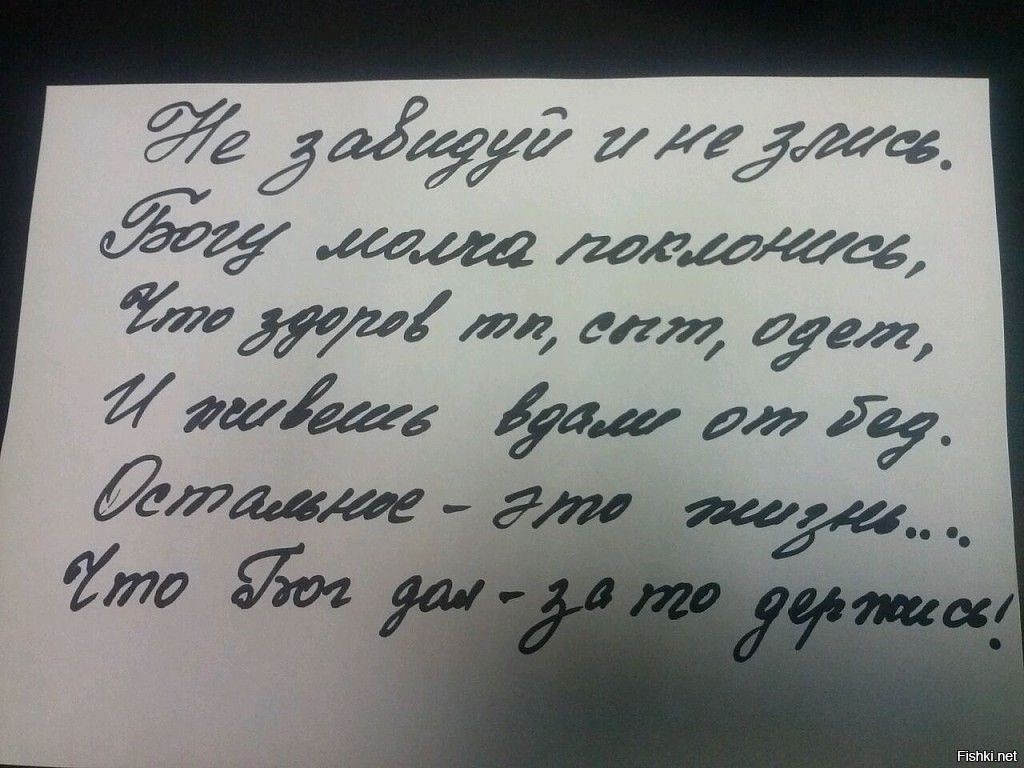 Не завидуй и не злись.
Богу молча поклонись,
Что здоров ты, сыт, одет,
И живешь вдали от бед.
Остальное - это жизнь....
Что Бог дал - за то держись!
Fishki.net